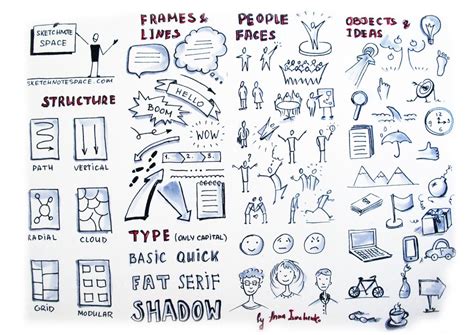 SKETCHNOTE
SPACE
SKETCHNOTESPACE.COM
STRUCTURE
PATH
VERTICAL
RADIAL
CLOUD
GRID
MODULAR
FRAMES &
LINES
HELLO
BOOM
WOW
1. 2. 3.
TYPE (ONLY CAPITAL)
BASIC QUICK
FAT SERIF
SHADOW
PEOPLE
FACES
by Anna
OBJECTS &
IDEAS